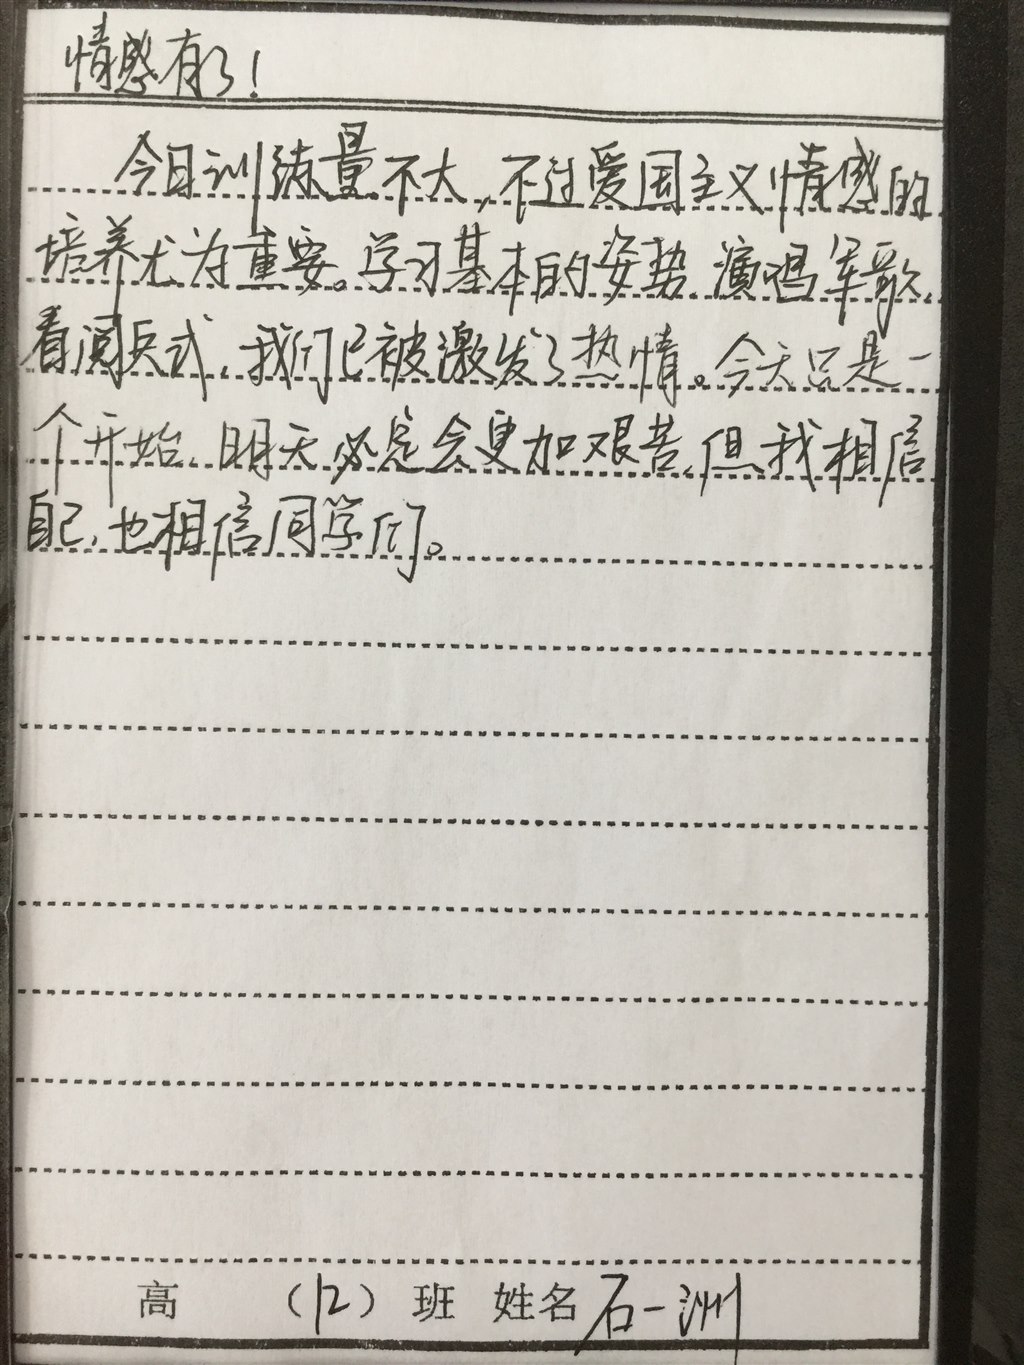 情感有了!
今日训练量不大,不过爱国主义情感的
培养尤为重要。学习基本的姿势、演唱军歌、
看阅兵式,我们已被激发了热情。今天只是一
个开始、明天必定会更加艰苦,但我相信
自己,也相信同学们。
高 (12) 班 姓名 石一洲